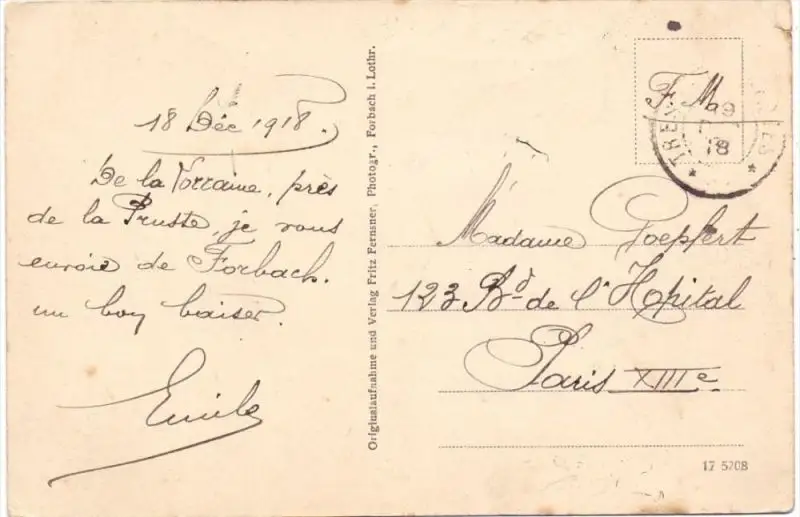 18 Déc 1918.
De la Lorraine, près
de la Prusse, je vous
envoie de Forbach.
un bon baiser.
Emile
Originalaufnahme und Verlag Fritz Fernsner, Photogr., Forbach i. Lothr.
F. M.
18
Madame Goepfert
123 Bd de l'Hopital
Paris XIIIe
17 5208